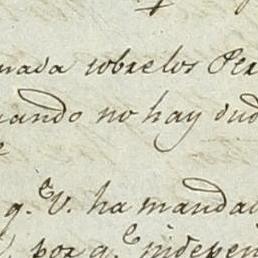 nada sobre los Per
uando no hay dud
q.e V. ha mandad
por q.e indepen